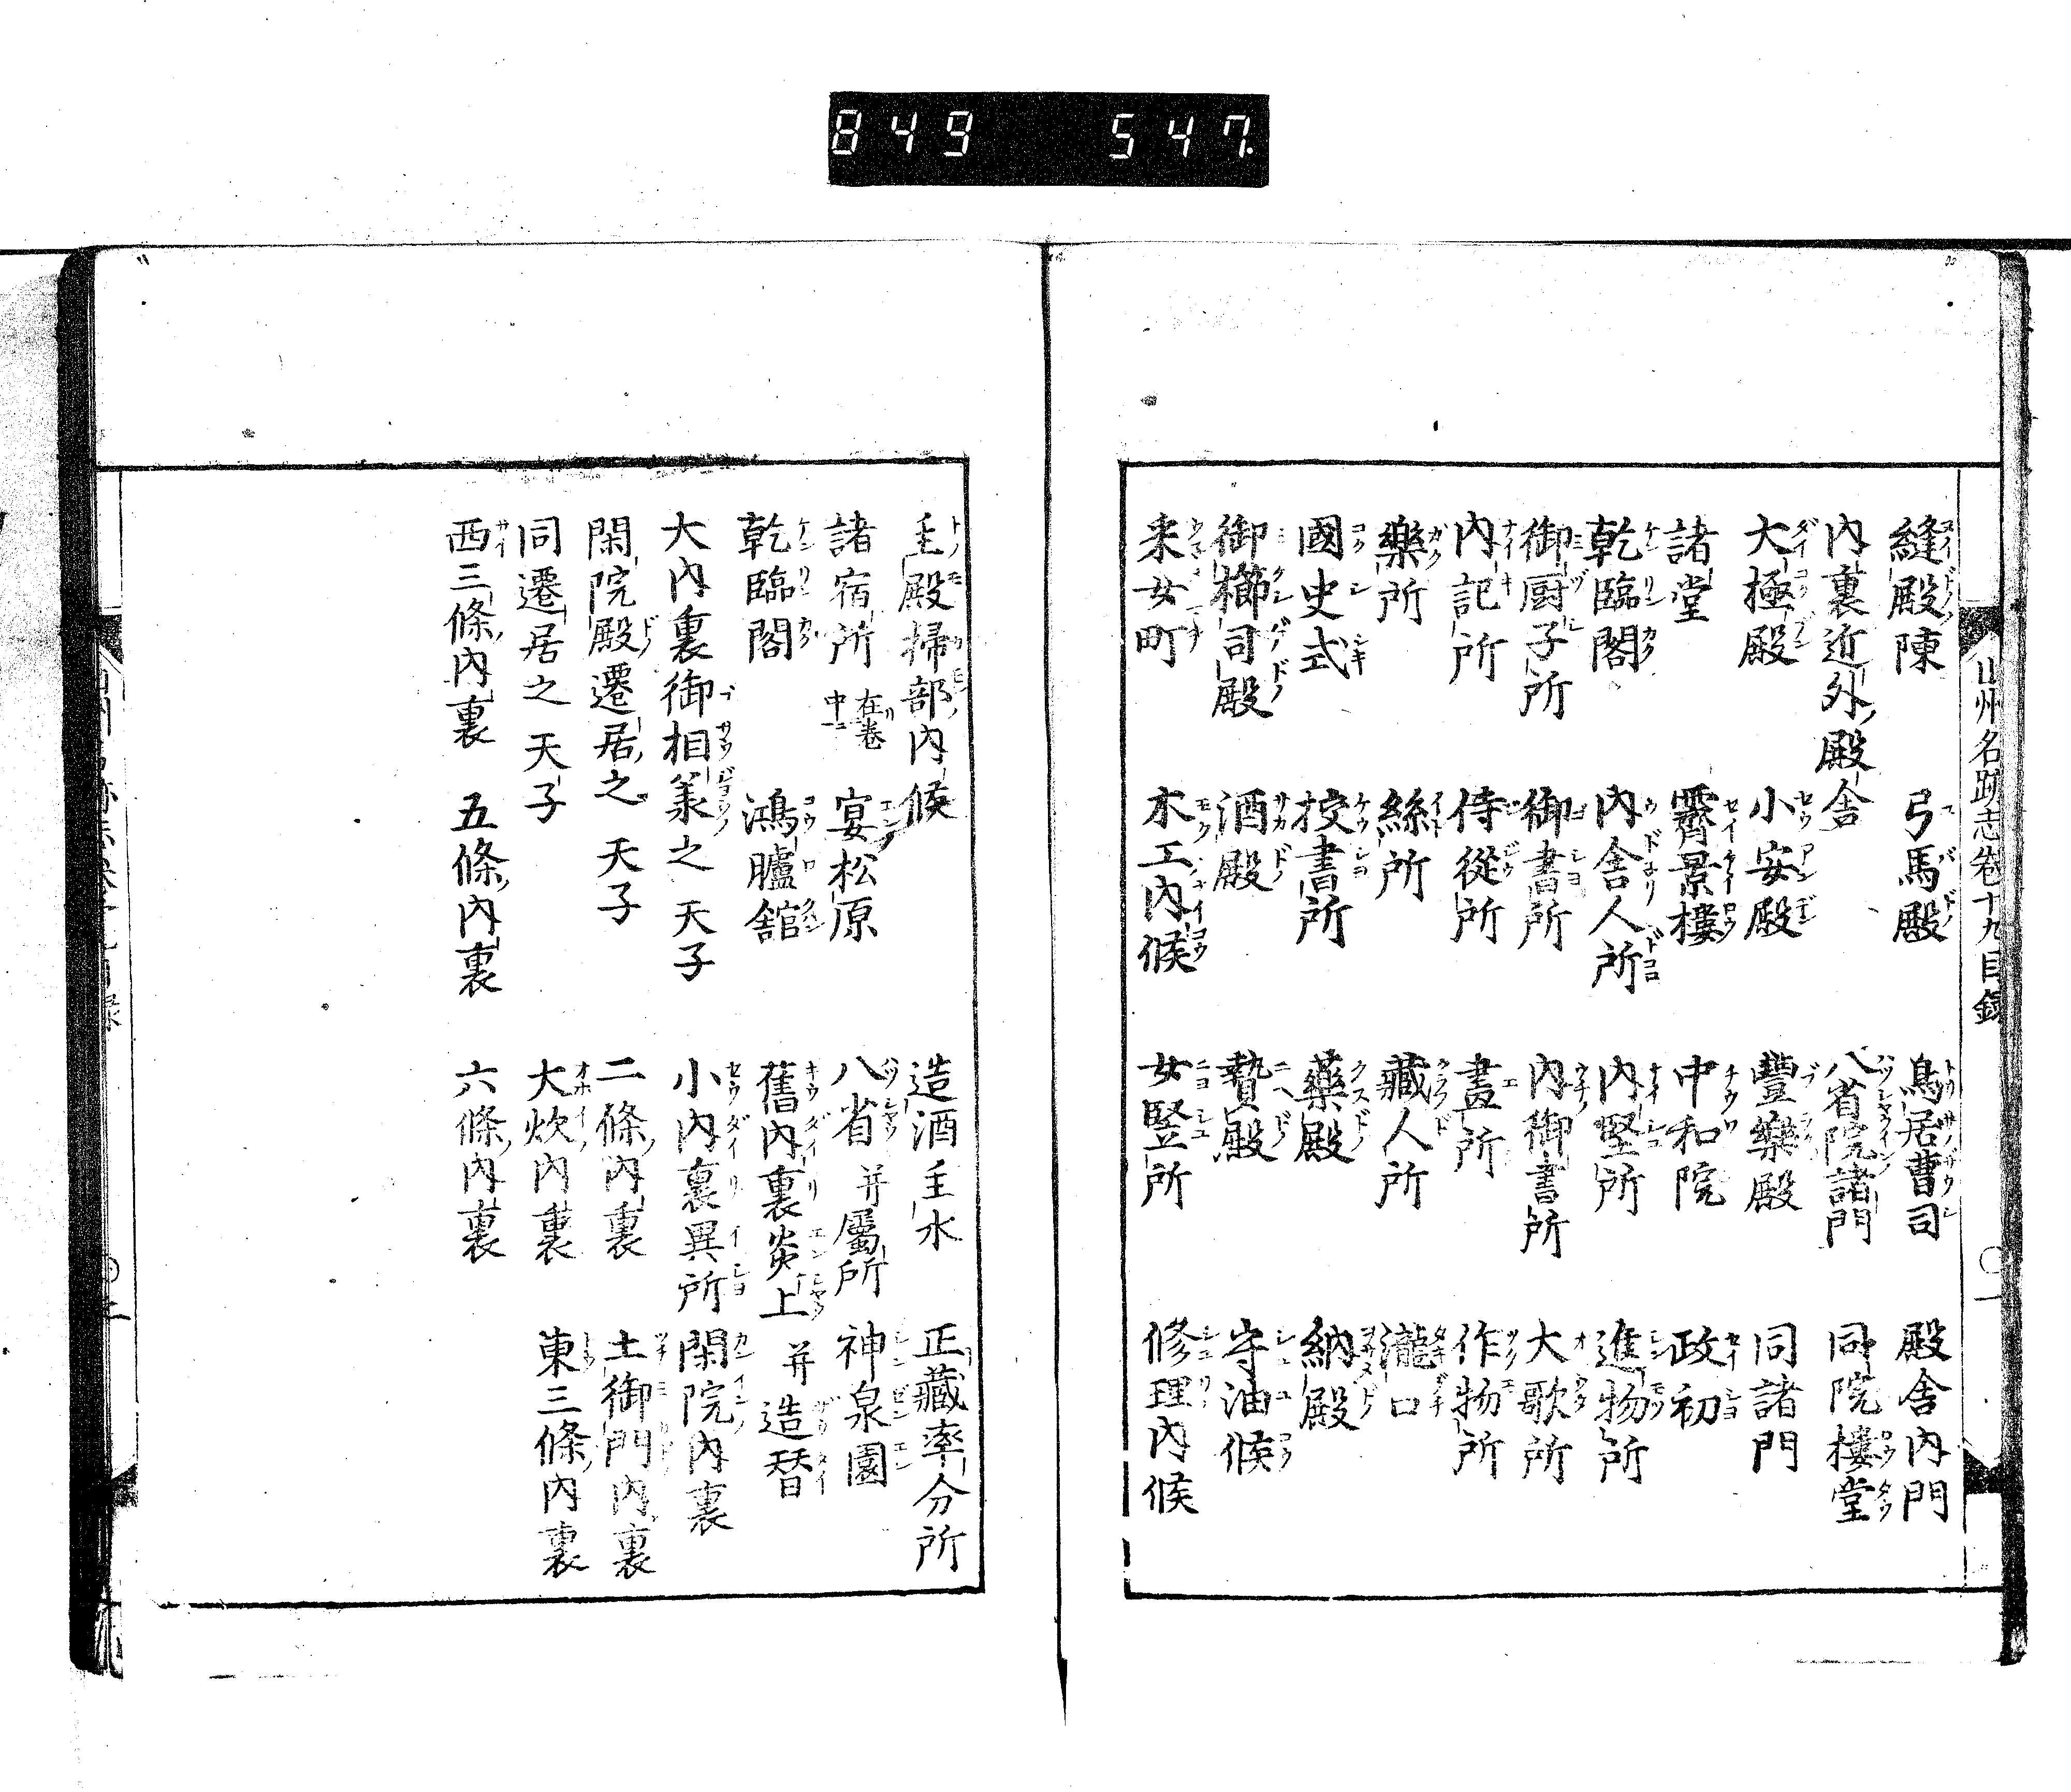 849 547.
山州名跡志卷十九目録 〇一
縫殿陳 弓馬殿 鳥居曹司 殿舎内門
内裏近外殿舎 八省院諸門 同院樓堂
大極殿 小安殿 豐樂殿 同諸門
諸堂 霽景樓 中和院 政初
乾臨閣 内舎人所 内竪所 進物所
御厨子所 御書所 内御書所 大歌所
内記所 侍從所 畫所 作物所
藥所 絲所 藏人所 瀧口
國史式 挍書所 藥殿 納殿
御櫛司殿 酒殿 贄殿 守油候
采女町 木工内候 女竪所 修理内候
主殿掃部内候 造酒主水 正藏率分所
諸宿所 在卷中ニ 宴松原 八省 并屬所 神泉園
乾臨閣 鴻臚舘 舊内裏炎上 并造替
大内裏御相羕之天子 小内裏異所 閑院内裏
閑院殿遷居之天子 二條内裏 土御門内裏
同遷居之天子 大炊内裏 東三條内裏
西三條内裏 五條内裏 六條内裏